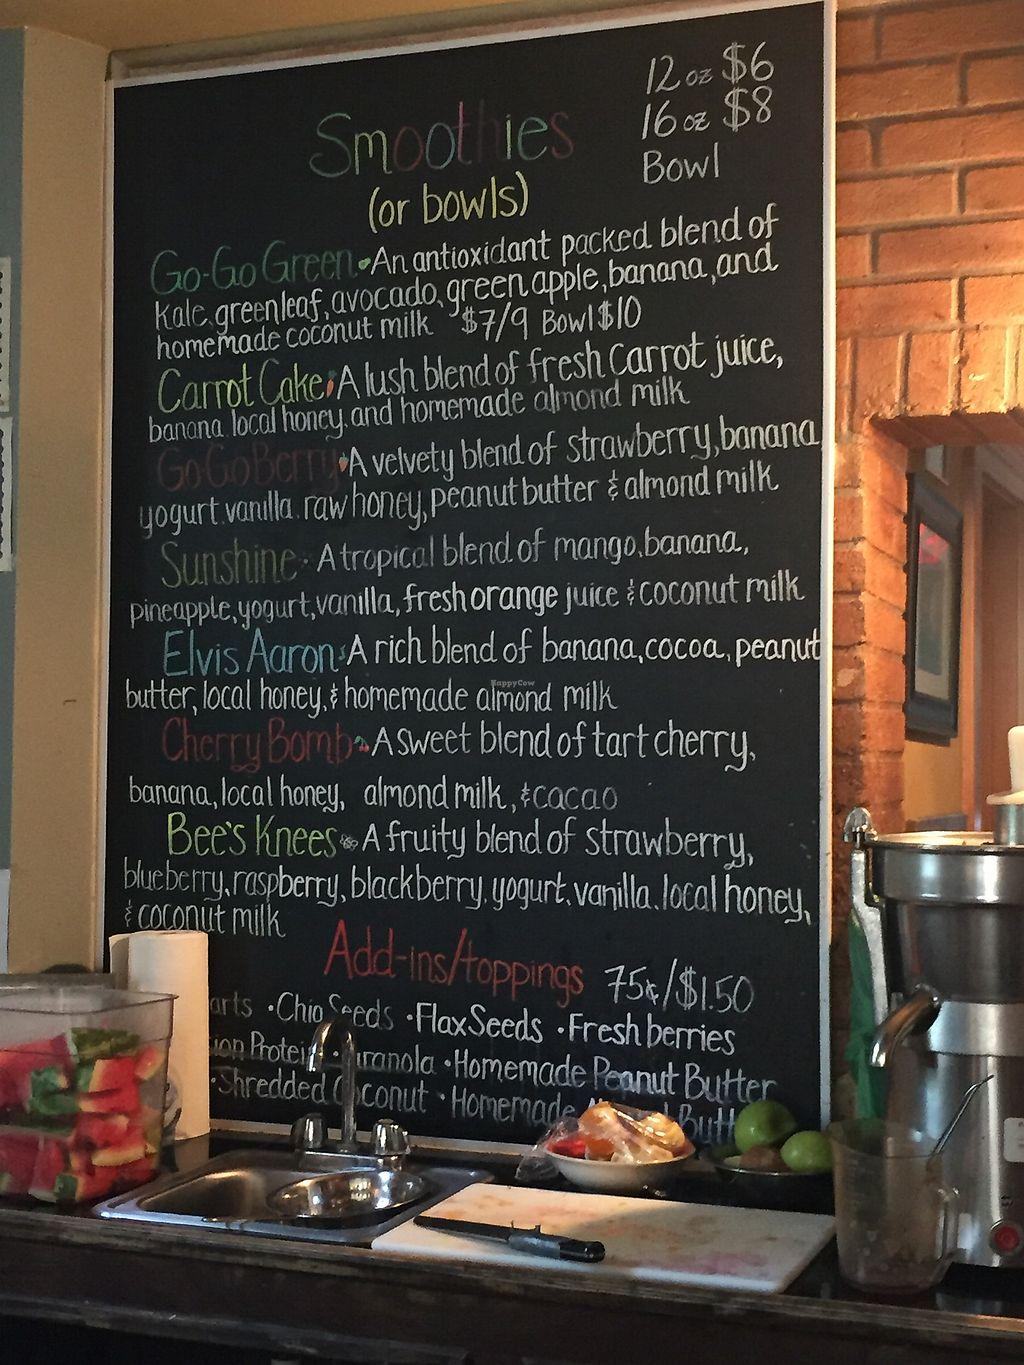 12 oz $6
16 oz $8
Bowl
Smoothies
(or bowls)
Go-Go Green • An antioxidant packed blend of
Kale, greenleaf, avocado, green apple, banana, and
homemade coconut milk $7/9 Bowl $10
Carrot Cake • A lush blend of fresh Carrot juice,
banana, local honey, and homemade almond milk
Go Go Berry • A velvety blend of strawberry, banana
yogurt, vanilla, raw honey, peanut butter & almond milk
Sunshine • A tropical blend of mango, banana,
pineapple, yogurt, vanilla, fresh orange juice & coconut milk
Elvis Aaron • A rich blend of banana, cocoa, peanut
butter, local honey, & homemade almond milk
HappyCow
Cherry Bomb • A sweet blend of tart cherry,
banana, local honey, almond milk, & cacao
Bee's Knees • A fruity blend of strawberry,
blueberry, raspberry, blackberry, yogurt, vanilla, local honey,
& coconut milk
Add-ins/toppings 75¢/$1.50
• Chia Seeds • Flax Seeds • Fresh berries
• Homemade Peanut Butter
• Shredded Coconut • Homemade